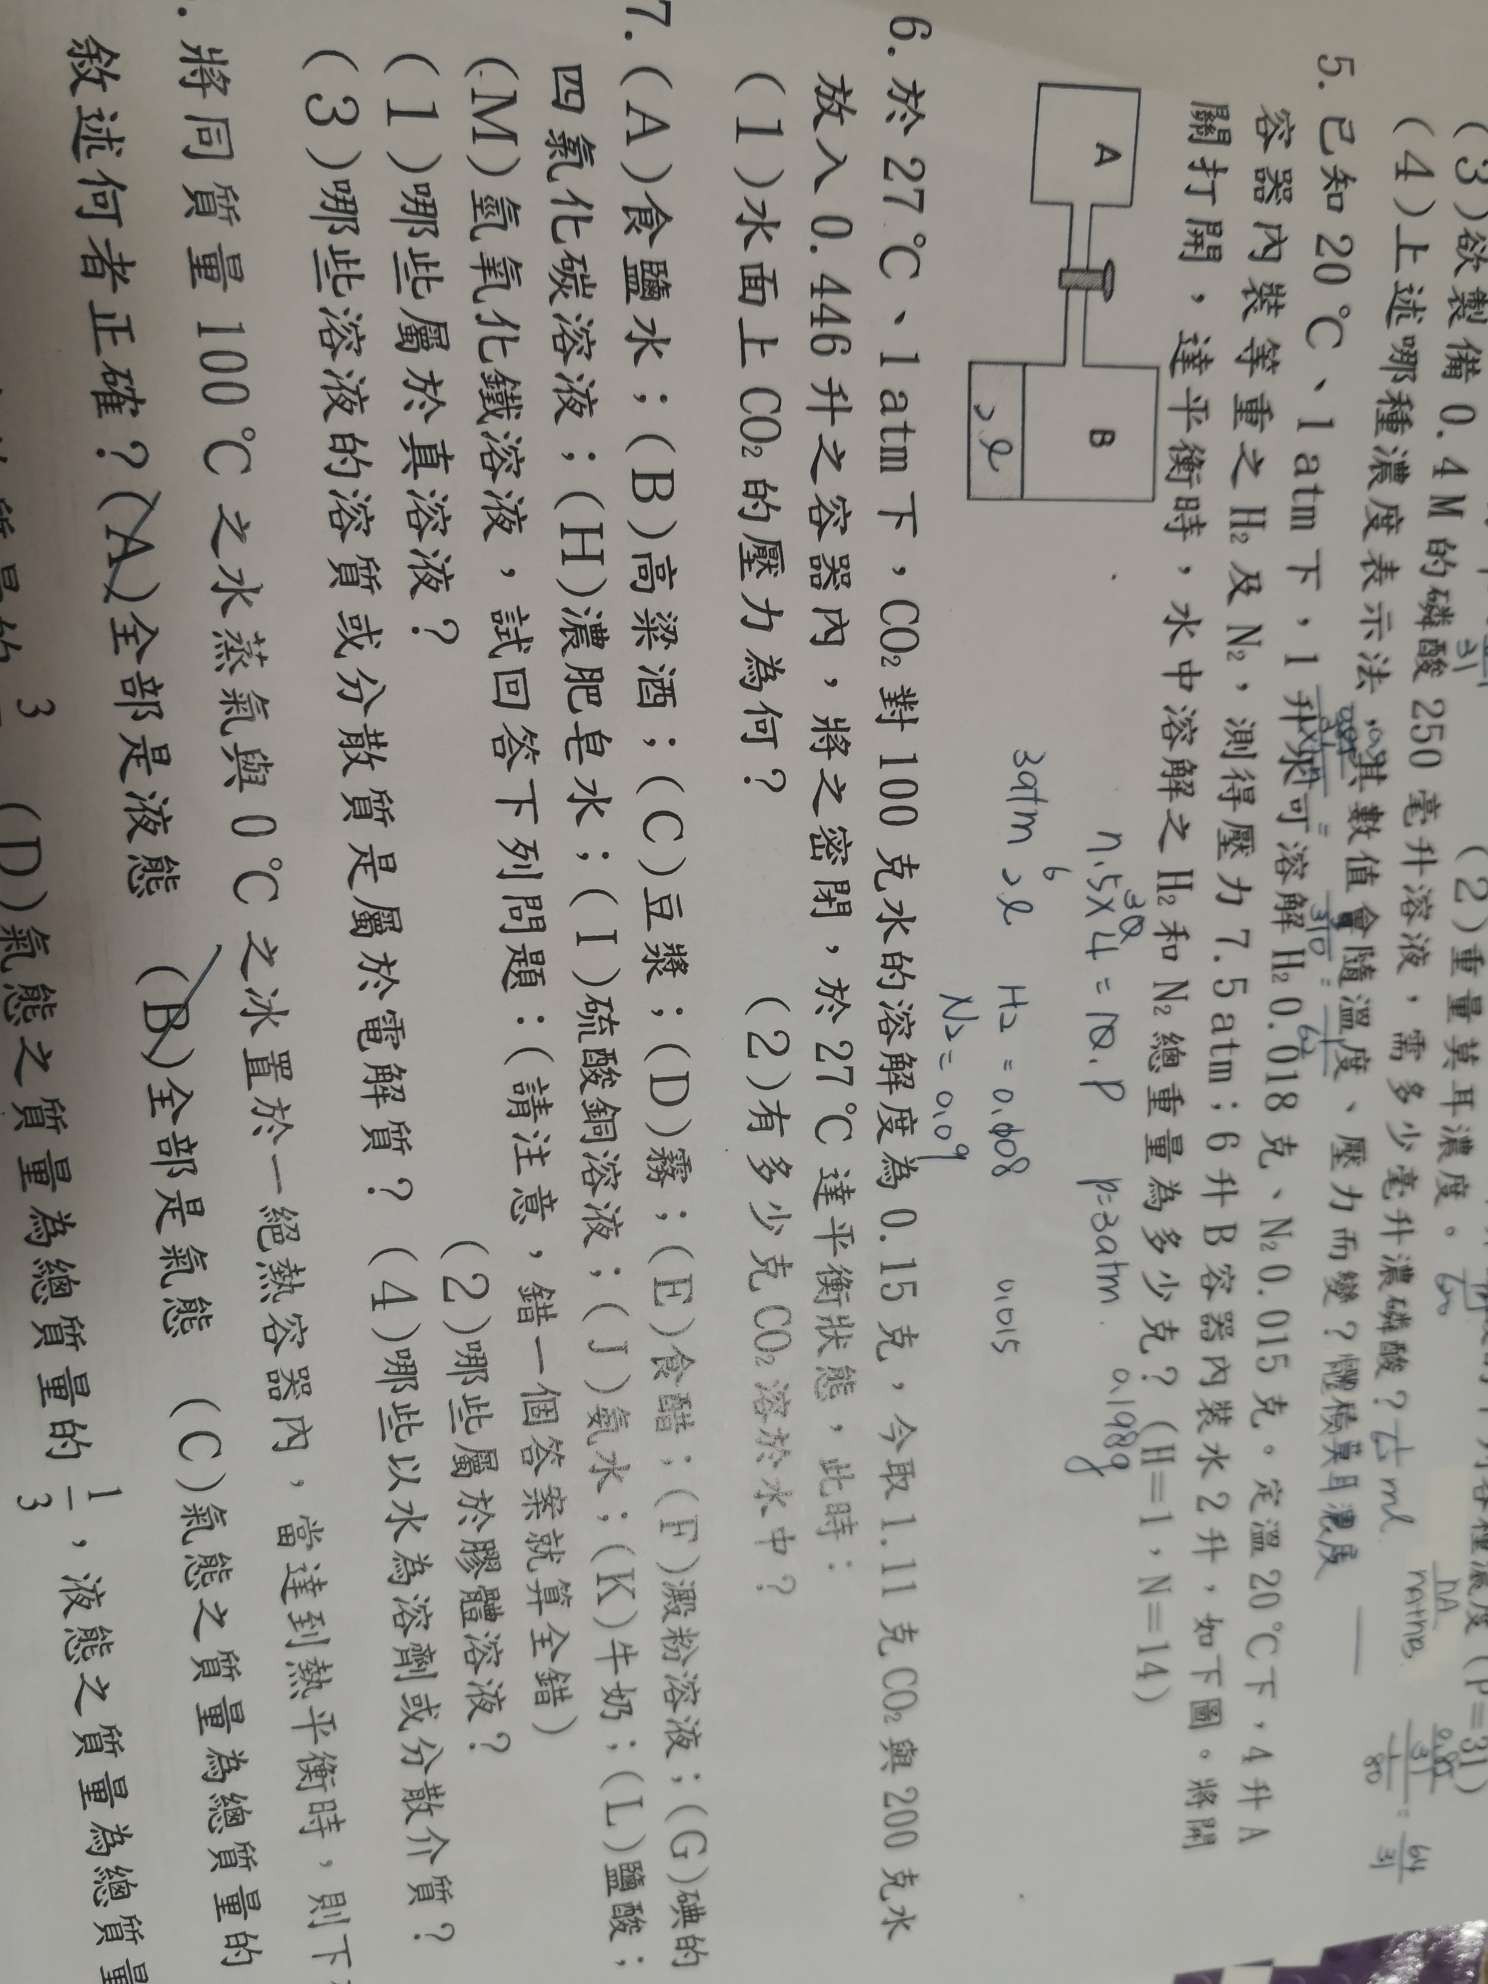 (3)欲製備 0.4M 的磷酸 250 毫升溶液，需多少毫升濃磷酸？
(2)重量莫耳濃度。
(4)上述哪種濃度表示法，其數值會隨溫度、壓力而變？體積莫耳濃度
5. 已知 20℃、1atm 下，1 升水可溶解 H₂ 0.018 克、N₂ 0.015 克。定溫 20℃下，4 升 A
容器內裝等重之 H₂ 及 N₂，測得壓力 7.5atm；6 升 B 容器內裝水 2 升，如下圖。將開
關打開，達平衡時，水中溶解之 H₂ 和 N₂ 總重量為多少克？(H=1，N=14)
A
B
2ℓ
p=3atm
0.198g
3atm
2ℓ
H₂ = 0.108
0.015
N₂ = 0.09
6. 於 27℃、1atm 下，CO₂ 對 100 克水的溶解度為 0.15 克，今取 1.11 克 CO₂ 與 200 克水
放入 0.446 升之容器內，將之密閉，於 27℃達平衡狀態，此時：
(1)水面上 CO₂ 的壓力為何？ (2)有多少克 CO₂ 溶於水中？
7. (A)食鹽水；(B)高粱酒；(C)豆漿；(D)霧；(E)食醋；(F)澱粉溶液；(G)碘的
四氯化碳溶液；(H)濃肥皂水；(I)硫酸銅溶液；(J)氨水；(K)牛奶；(L)鹽酸；
(M)氫氧化鐵溶液，試回答下列問題：(請注意，錯一個答案就算全錯)
(1)哪些屬於真溶液？ (2)哪些屬於膠體溶液？
(3)哪些溶液的溶質或分散質是屬於電解質？ (4)哪些以水為溶劑或分散介質？
將同質量 100℃之水蒸氣與 0℃之冰置於一絕熱容器內，當達到熱平衡時，則下
敘述何者正確？(A)全部是液態 (B)全部是氣態 (C)氣態之質量為總質量的
(D)氣態之質量為總質量的 1/3，液態之質量為總質量